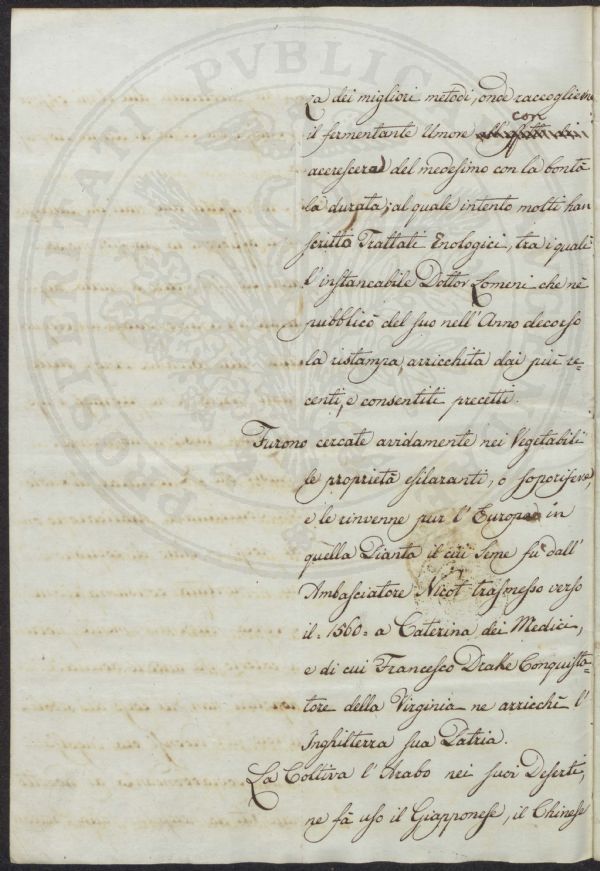 za dei migliori metodi, onde raccogliere
con
il fermentante Umore
accrescere del medesimo con la bontà
la durata; al quale intento molti han
scritto Trattati Enologici, tra i quali
l'instancabile Dottor Lomeni che nè
pubblicò del suo nell'Anno decorso
la ristampa, arricchita dai più re-
centi, e consentiti precetti.
Furono cercate avidamente nei Vegetabili
le proprietà esilaranti, o soporifere,
e le rinvenne pur l'Europa in
quella Pianta il cui seme fù dall'
Ambasciatore Nicot trasmesso verso
il 1560. a Caterina dei Medici,
e di cui Francesco Drake Conquista-
tore della Virginia ne arricchì l'
Inghilterra sua Patria.
La Coltiva l'Arabo nei suoi Deserti,
ne fà uso il Giapponese, il Chinese
PROSPERITATI PVBLICAE